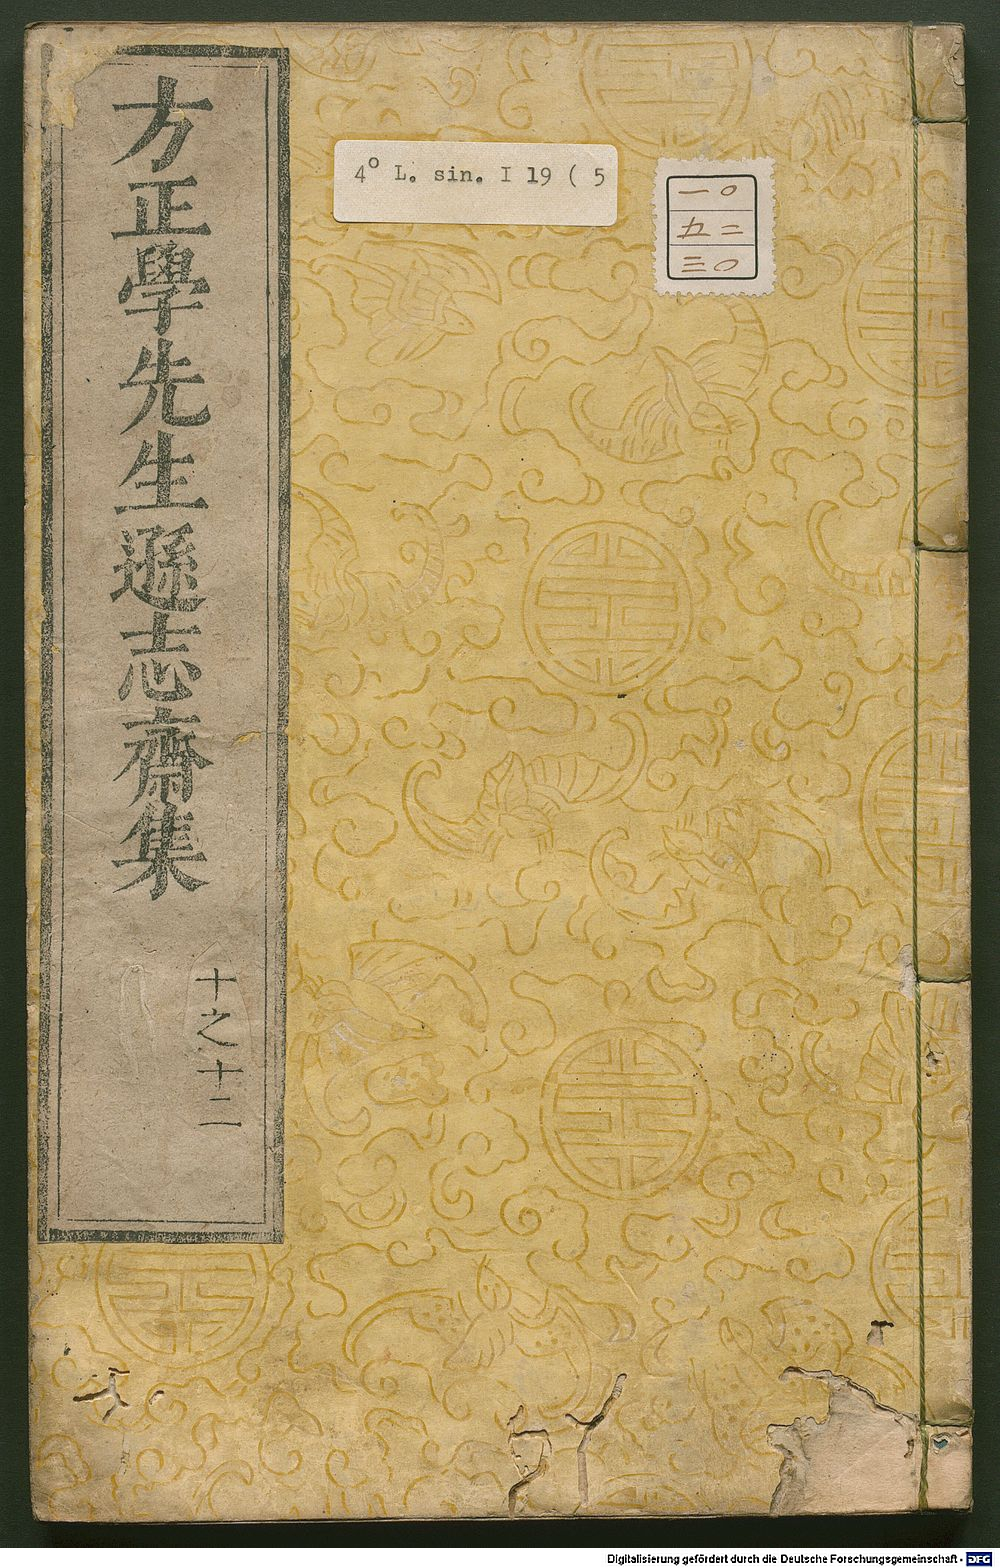 方正學先生遜志齋集
十之十二
4° L. sin. I 19 ( 5
一〇
五二
三〇
Digitalisierung gefördert durch die Deutsche Forschungsgemeinschaft - DFG